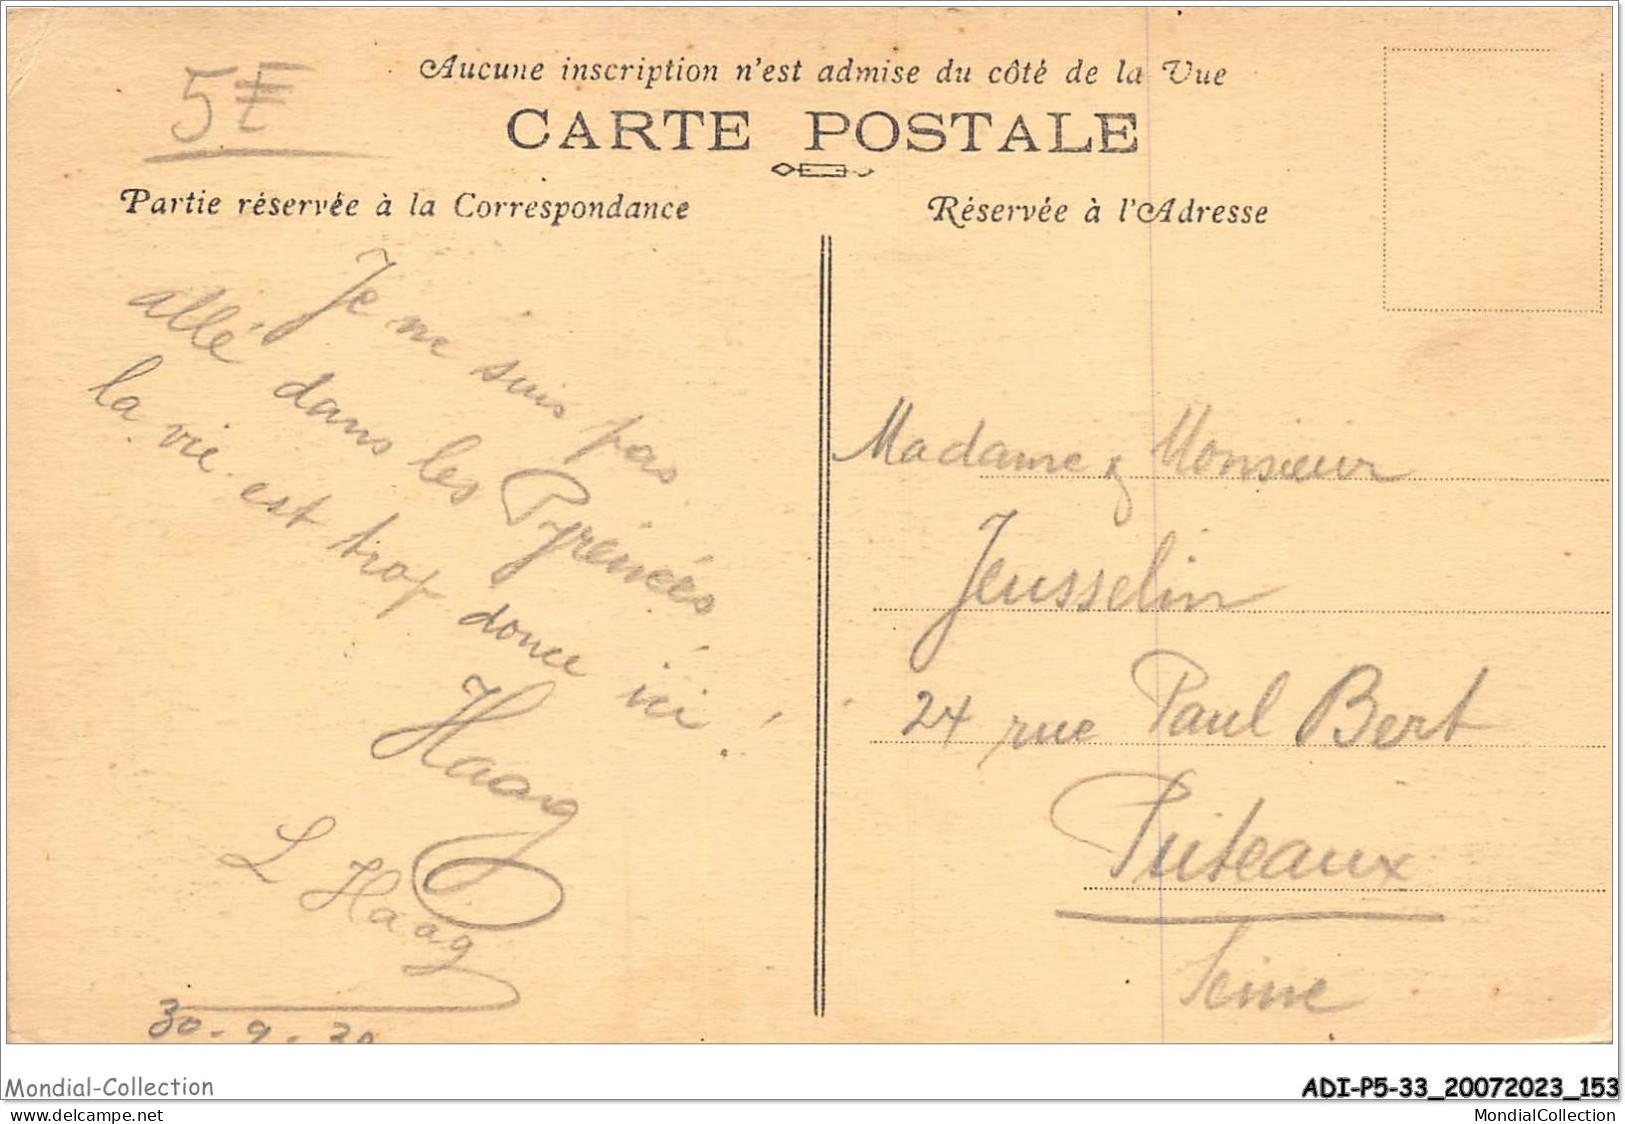 5€
Aucune inscription n'est admise du côté de la Vue
CARTE POSTALE
Partie réservée à la Correspondance
Réservée à l'Adresse
Je ne suis pas
allé dans les Pyrénées,
la vie est trop douce ici!
Haag
L Haag
30-9-30
Madame & Monsieur
Jeusselin
24 rue Paul Bert
Puteaux
Seine
Mondial-Collection
ADI-P5-33_20072023_153
www.delcampe.net
MondialCollection